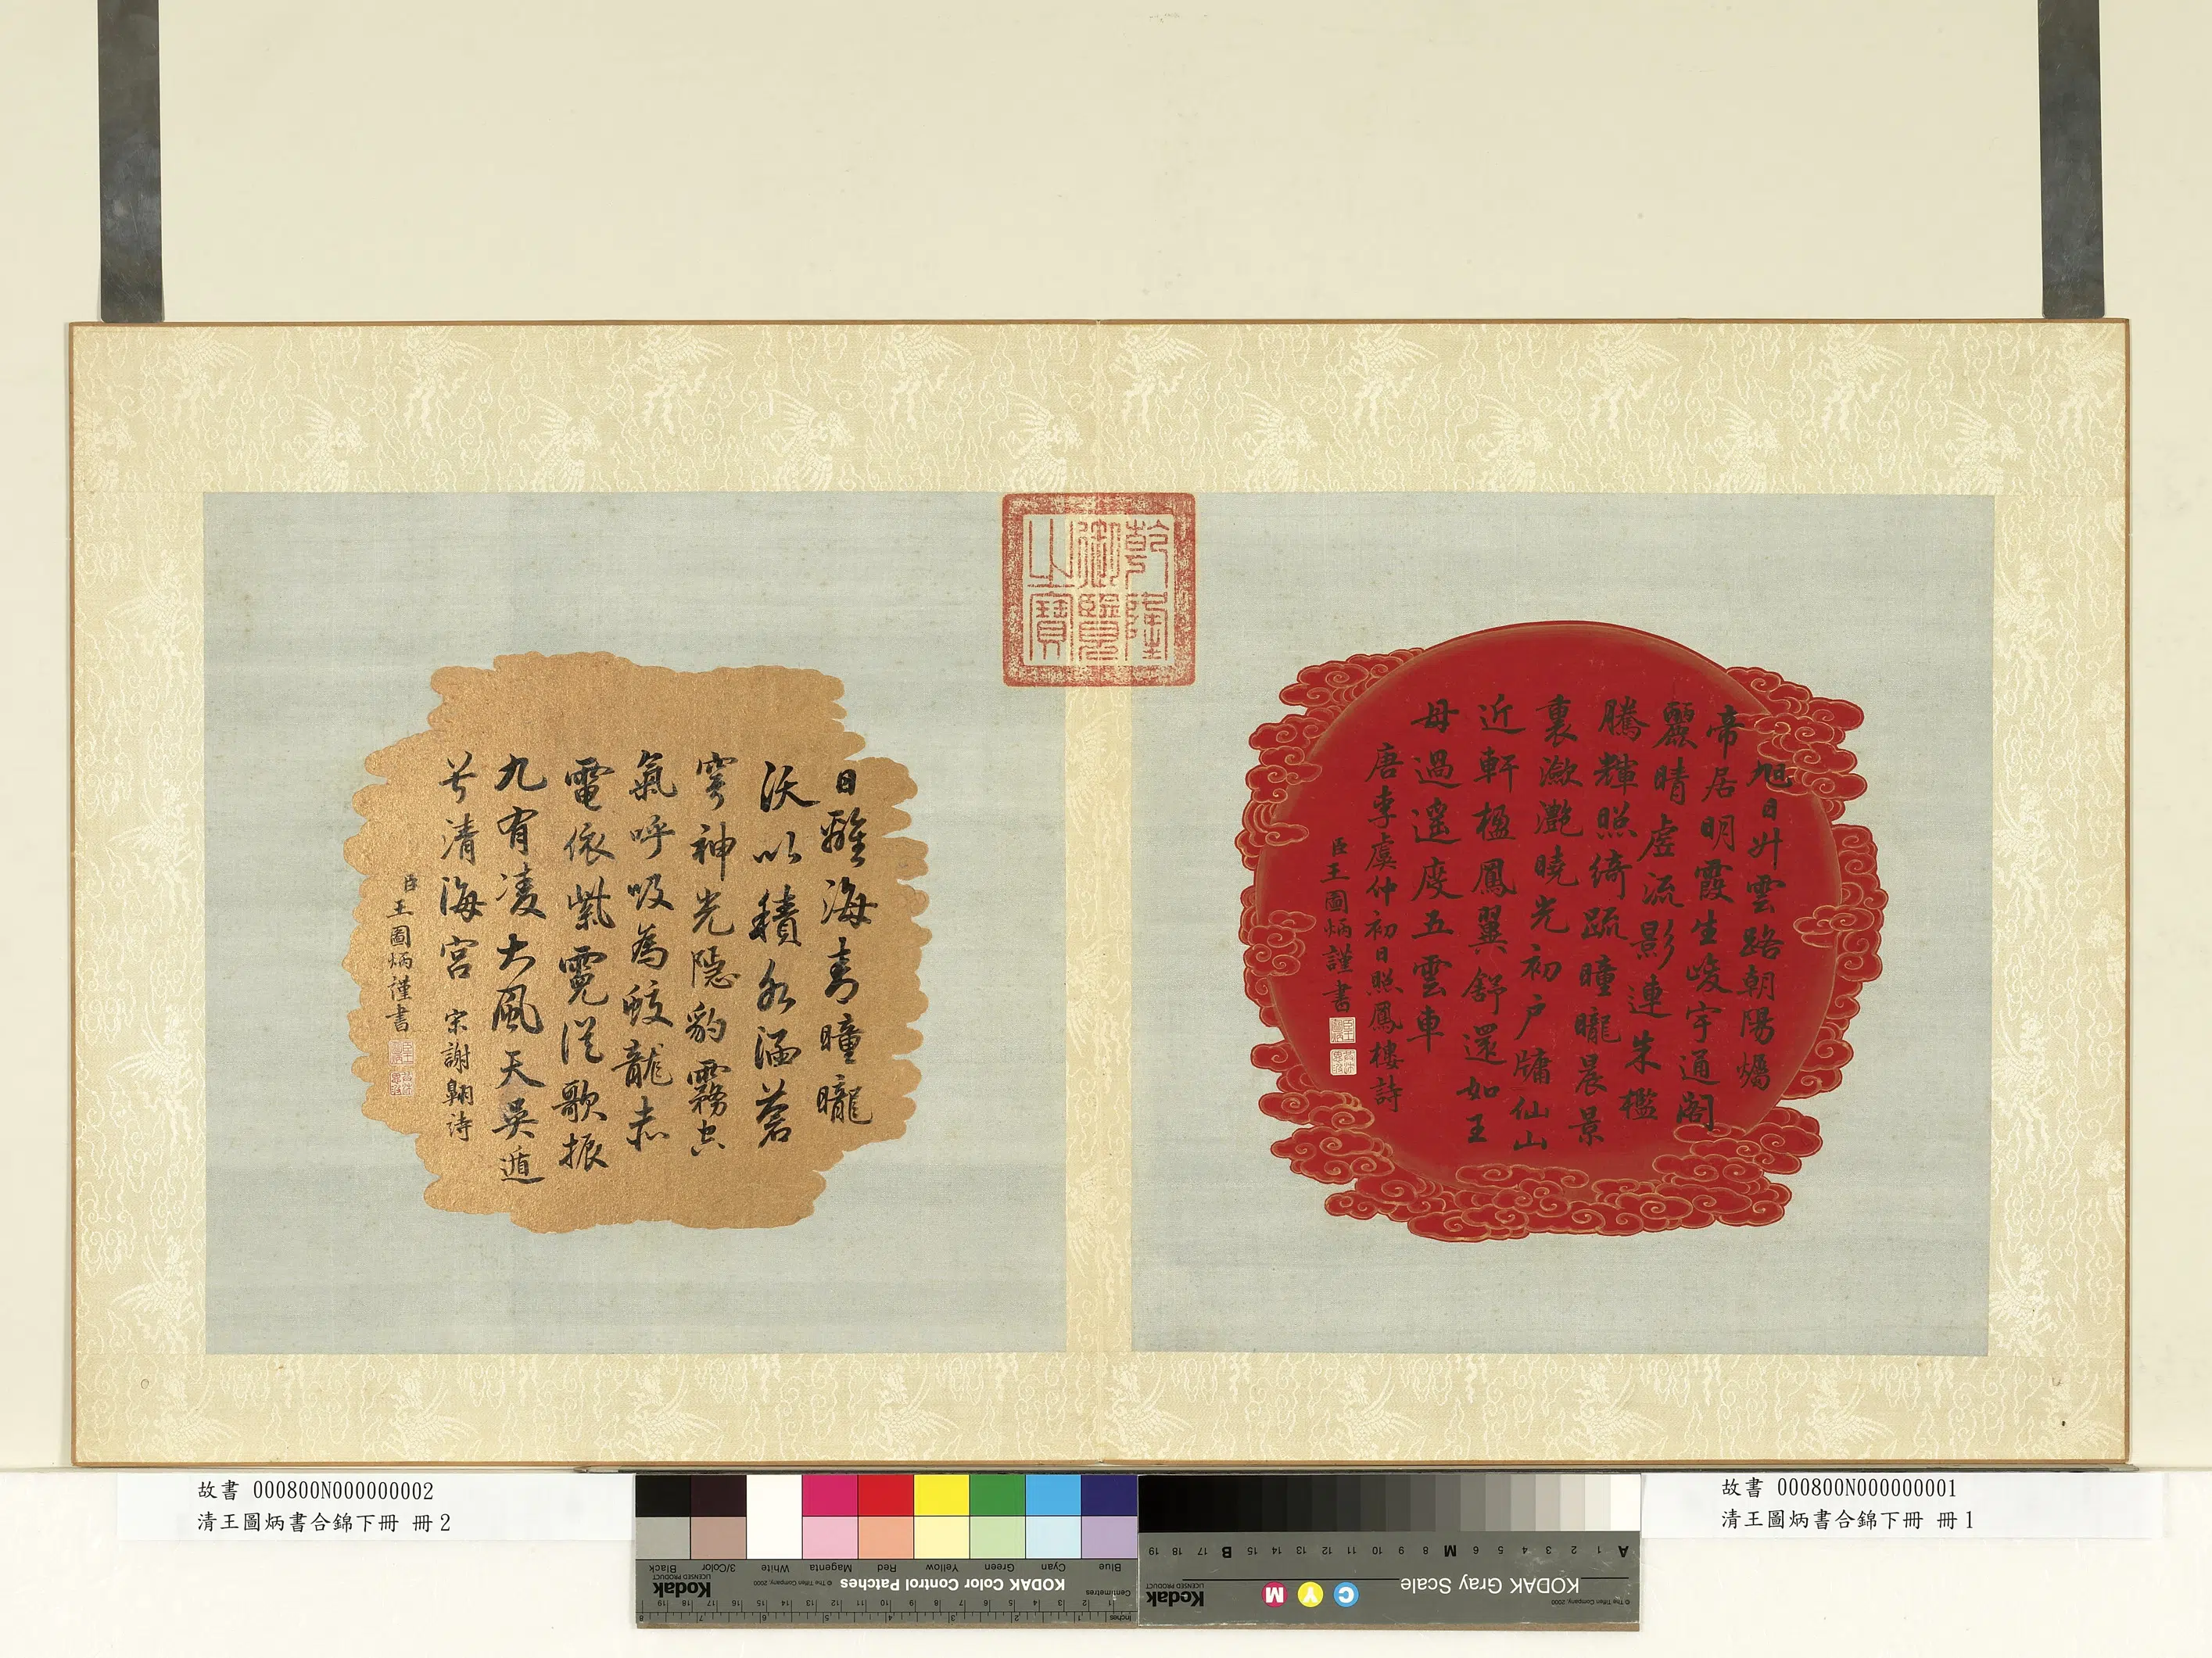 乾隆
御覽
之寶
旭日升雲路朝陽燭
帝居明霞生峻宇通閣
麗晴虛流影連朱檻
騰輝照綺疏曈曨晨景
裏瀲灩曉光初戶牖仙山
近軒楹鳳翼舒還如王
母過遙度五雲車
唐李虞仲初日照鳳樓詩
臣王圖炳謹書
日離海青曈曨
沃以積水涵蒼
穹神光隱豹霧空
氣呼吸為蛟龍赤
電依紫霓從歌振
九有凌大風天吳遁
兮清海宮 宋謝翱詩
臣王圖炳謹書
故書 000800N000000002
清王圖炳書合錦下冊 冊2
故書 000800N000000001
清王圖炳書合錦下冊 冊1
Blue Cyan Green Yellow Red Magenta White 3/Color Black
KODAK Color Control Patches © The Tiffen Company, 2000 Kodak LICENSED PRODUCT
Centimetres 1 2 3 4 5 6 7 8 9 10 11 12 13 14 15 16 17 18 19
Inches 1 2 3 4 5 6 7 8
A 1 2 3 4 5 6 M 8 9 10 11 12 13 14 15 B 17 18 19
KODAK Gray Scale C Y M Kodak LICENSED PRODUCT
© The Tiffen Company, 2000